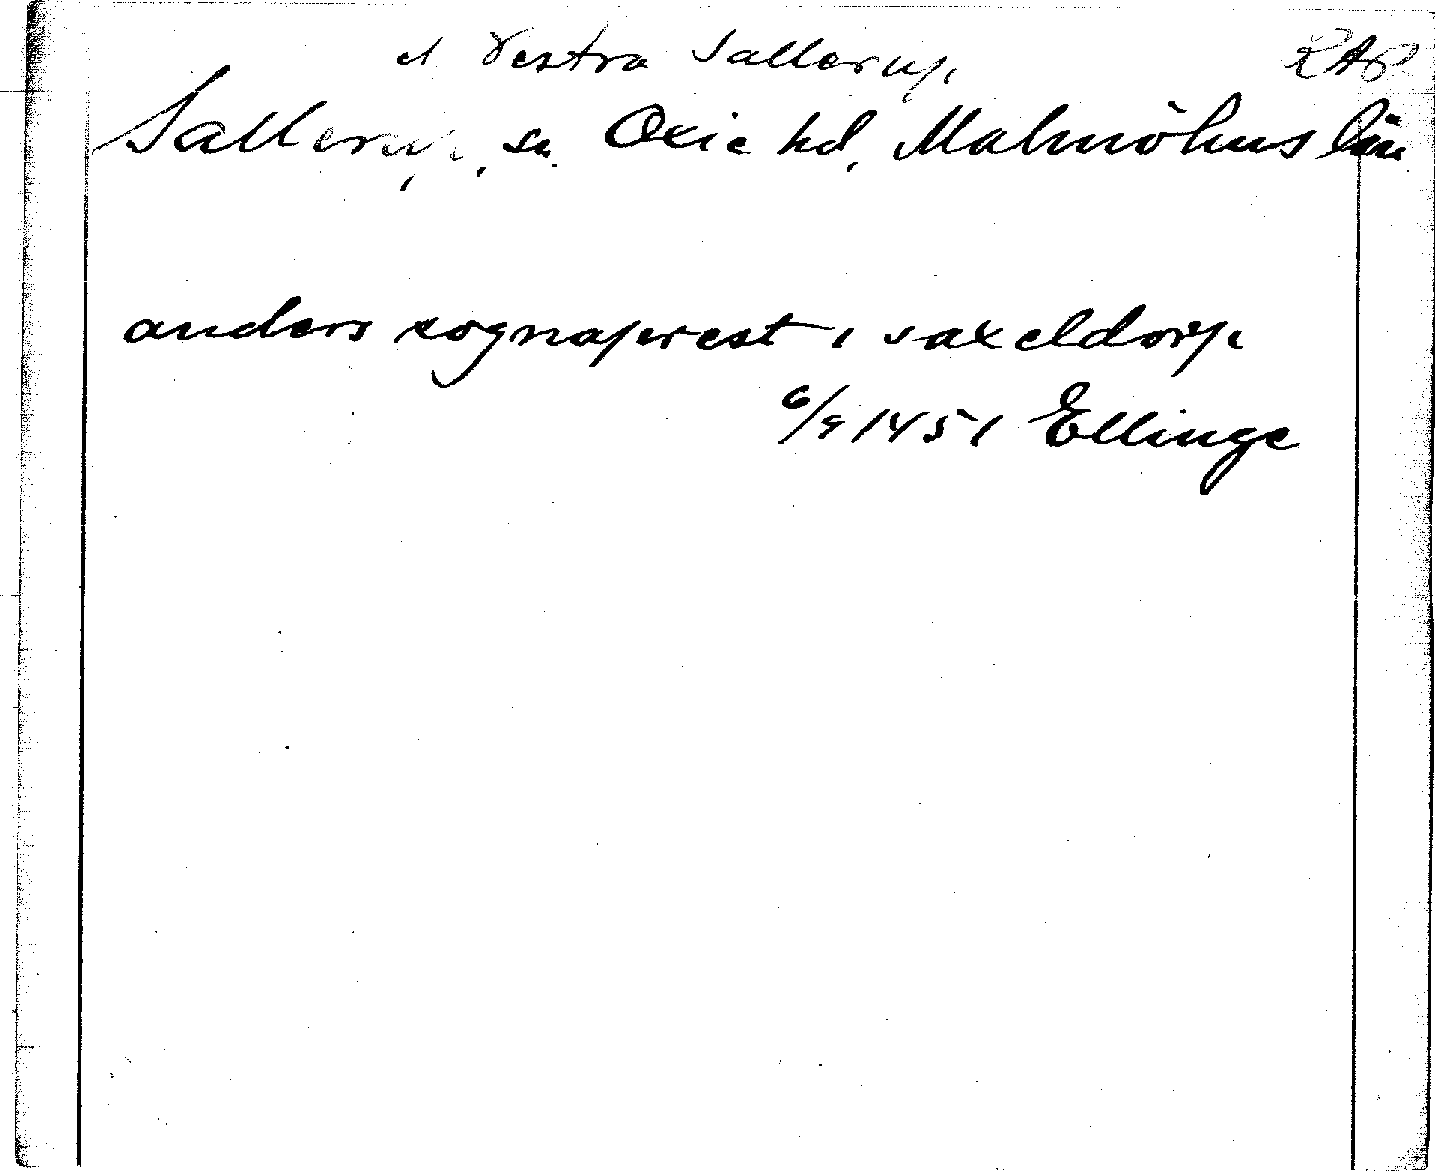 el Västra Sallerup, RAP
Sallerup, sn. Oxie hd, Malmöhus län
anders sognaprest i saxeldorp
6/9 1451 Ellinge